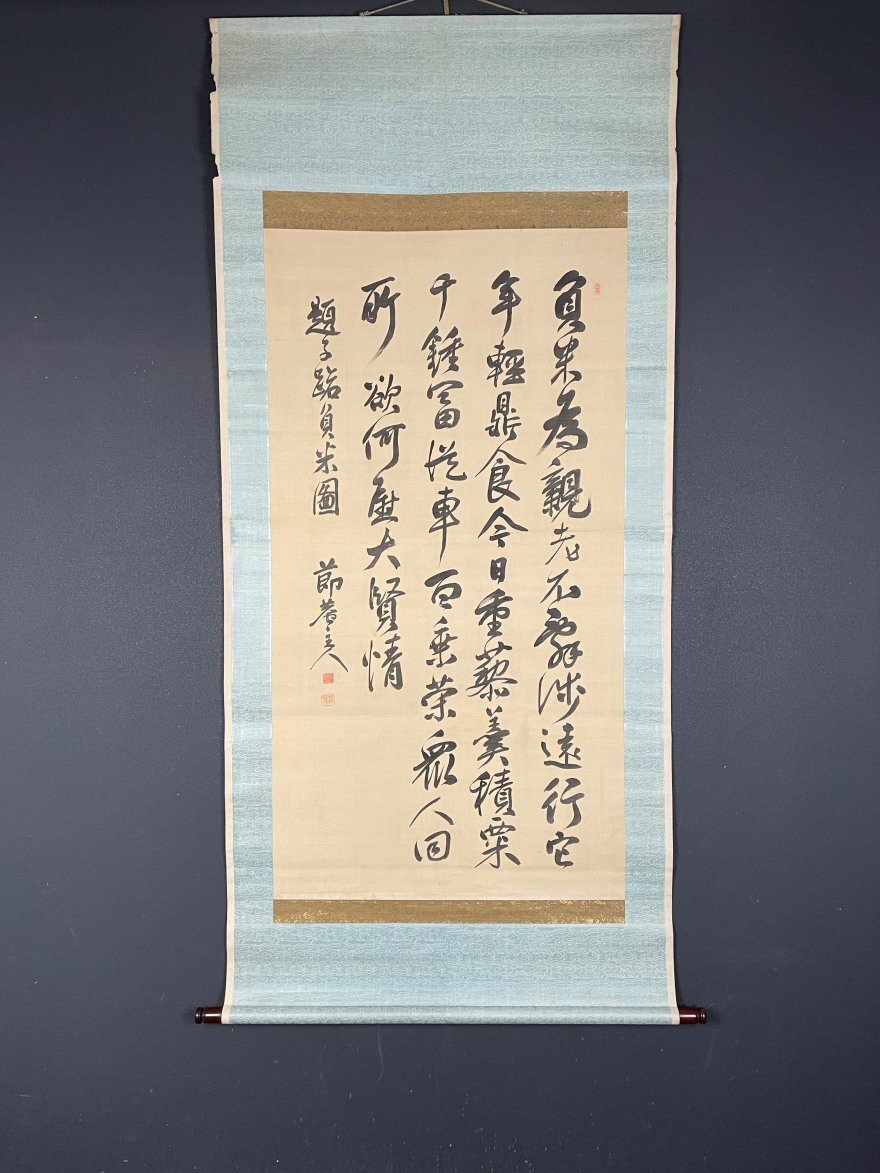 負米為親老不辭涉遠行它
年輕鼎食今日重藜羹積粟
千鍾富從車百乗荣衆人同
所欲何匹大賢情
題子路負米圖 節菴主人